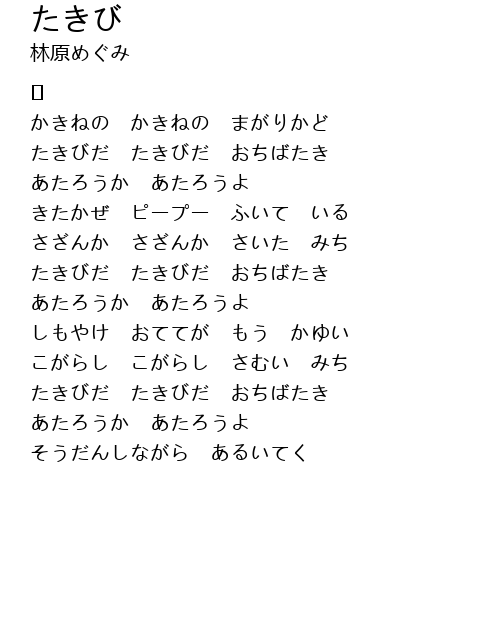 たきび
林原めぐみ
かきねの　かきねの　まがりかど
たきびだ　たきびだ　おちばたき
あたろうか　あたろうよ
きたかぜ　ピープー　ふいて　いる
さざんか　さざんか　さいた　みち
たきびだ　たきびだ　おちばたき
あたろうか　あたろうよ
しもやけ　おててが　もう　かゆい
こがらし　こがらし　さむい　みち
たきびだ　たきびだ　おちばたき
あたろうか　あたろうよ
そうだんしながら　あるいてく